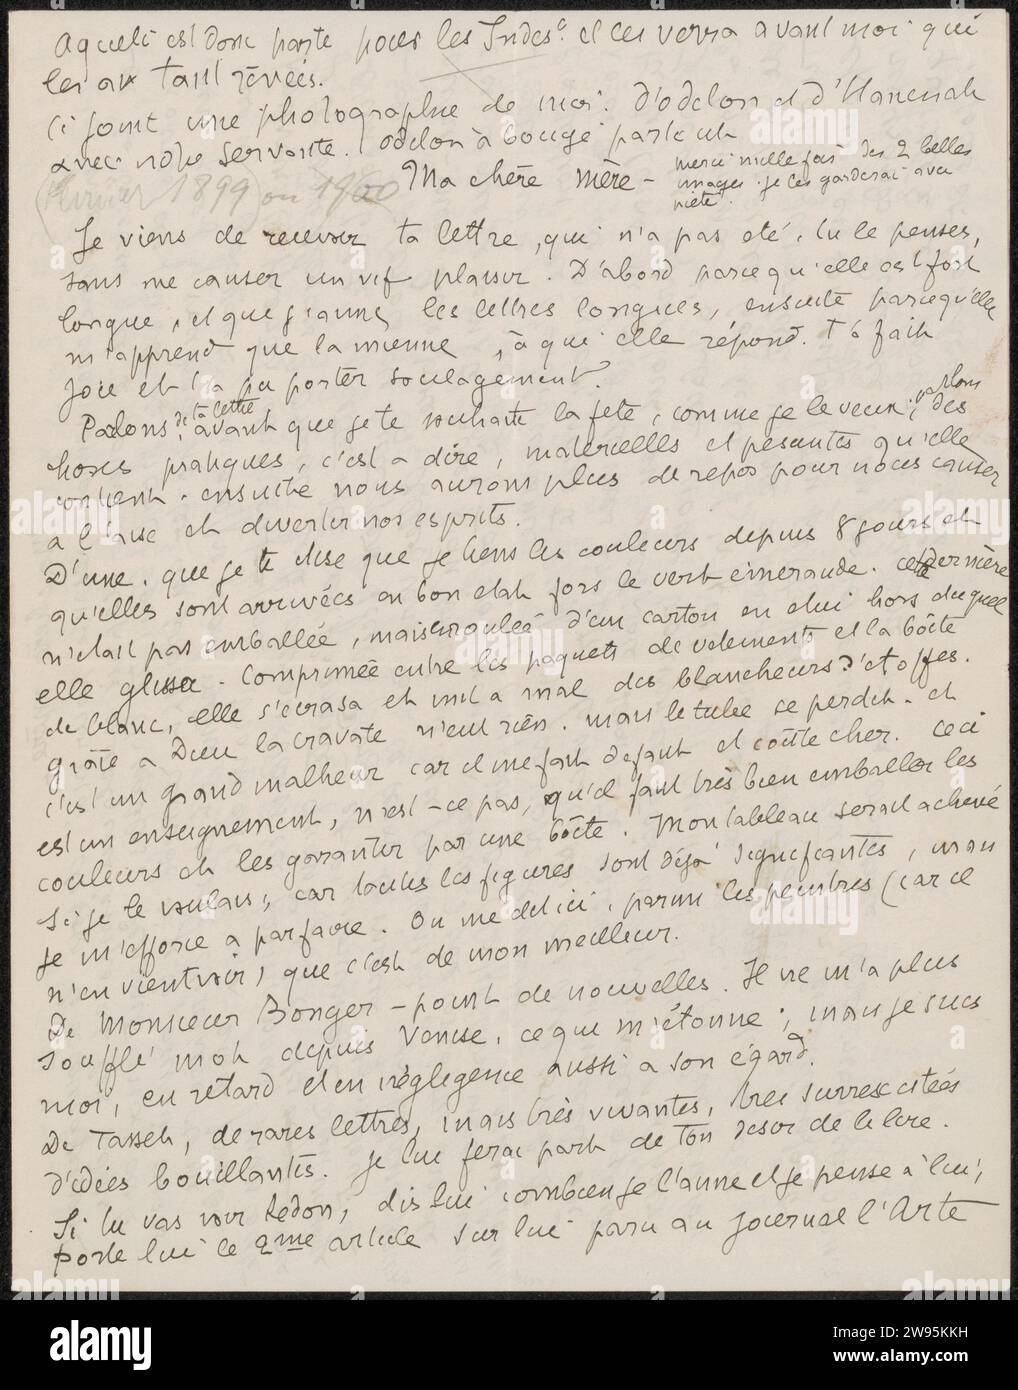 Agueli est donc parti pour les Indes. et les verra avant moi qui
les ai tant rêvées.
Ci joint une photographie de moi. d'odilon et d'Hanenah
avec notre servante. odilon a bougé
(février 1899) ou 1900
Ma chère mère -
merci mille fois des 2 belles
images. je les garderai avec
piété.
Je viens de recevoir ta lettre, qui n'a pas été, tu le penses,
sans me causer un vif plaisir. D'abord parce qu'elle est fort
longue, et que j'aime les lettres longues, ensuite parcequ'elle
m'apprend que la mienne, à qui elle répond. t'a fait
joie et t'a pu porter soulagement.
Parlons de ta lettre avant que je te souhaite la fête, comme je le veux, parlons des
choses pratiques, c'est a dire, materielles et pesantes qu'elle
contient. ensuite nous aurons plus de repos pour nous causer
a l'aise et divertir nos esprits.
D'une. que je te dise que je tiens les couleurs depuis 8 jours et
qu'elles sont arrivées en bon etat fors le vert émeraude. cette dernière
n'etait pas emballée, mais enroulée d'un carton en elui hors duquel
elle glissa. Comprimée entre les paquets de vetements et la boîte
de blanc, elle s'écrasa et mit a mal des blancheurs d'étoffes.
grâce a Dieu la cravate n'eut rien. mais le tube se perdit. et
c'est un grand malheur car il me fait defaut et coûte cher. Ceci
est un enseignement, n'est-ce pas, qu'il faut très bien emballer les
couleurs et les garantir par une boîte. Mon tableau serait achevé
si je le voulais, car toutes les figures sont déjà signifiantes, mais
je m'efforce a parfaire. On me dit ici, parmi les peintres (car il
n'en vient voir) que c'est de mon meilleur.
De Monsieur Bonger - point de nouvelles. Il ne m'a plus
soufflé mot depuis Venise, ce qui m'étonne; mais je suis
moi, en retard et en néglegence aussi a son égard.
De Tasset, de rares lettres, mais très vivantes, très surrexcitées
d'idées bouillantes. Je lui ferai part de ton desir de le lire.
Si tu vas voir Redon, dis lui combien je l'aime et je pense à lui,
porte lui le 2me article sur lui paru au journal l'Arte
alamy
Image ID: 2W95KKH
www.alamy.com